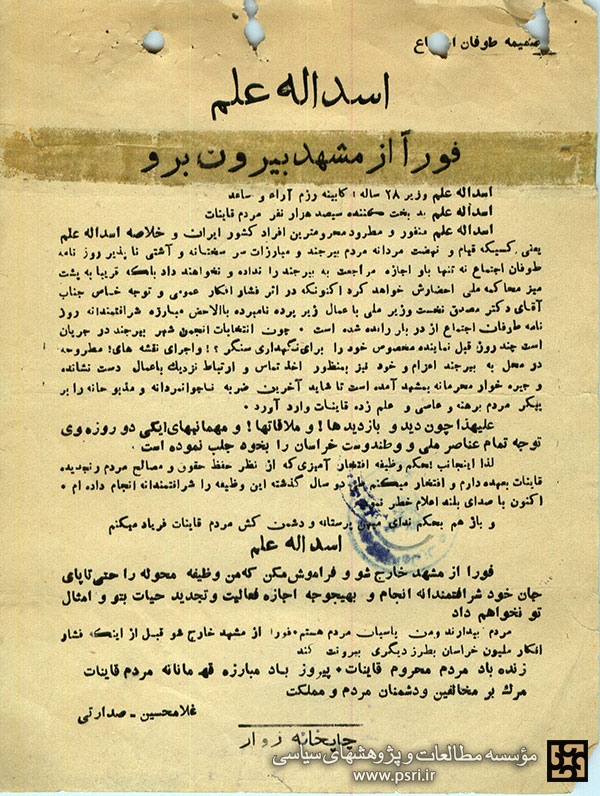 ضمیمه طوفان اجتماع
اسداله علم
فوراً از مشهد بیرون برو
اسداله علم وزیر ۲۸ ساله کابینه رزم آراء و ساعد
اسداله علم بد بخت کننده سیصد هزار نفر مردم قاینات
اسداله علم منفور و مطرود و محرومترین افراد کشور ایران و خلاصه اسداله علم
یعنی کسیکه قیام و نهضت مردانه مردم بیرجند و مبارزات سر سختانه و آشتی نا پذیر روز نامه
طوفان اجتماع نه تنها باو اجازه مراجعت به بیرجند را نداده و نخواهند داد بلکه قریبا به پشت
میز محاکمه ملی احضارش خواهد کرد اکنونکه در اثر فشار افکار عمومی و توجه خاص جناب
آقای دکتر مصدق نخست وزیر ملی با عمال زیر پرده نامبرده بالاحض مبارزه شرافتمندانه روز
نامه طوفان اجتماع از در بار رانده شده است ۰ چون انتخابات انجمن شهر بیرجند در جریان
است چند روز قبل نماینده مخصوص خود را برای نگهداری سنگر ؟! و اجرای نقشه های! مطروحه
در محل به بیرجند اعزام و خود نیز بمنظور اخذ تماس و ارتباط نزدیک باعمال دست نشانده
و جیره خوار محرمانه بمشهد آمده است تا شاید آخرین ضربه ناجوانمردانه و مذبوحانه را بر
پیکر مردم برهنه و عاصی و علم زده قاینات وارد آورد ۰
علیهذا چون دید و بازدیدها! و ملاقاتها! و مهمانیهای ایگی دو روزه وی
توجه تمام عناصر ملی و وطندوست خراسان را بخود جلب نموده است ۰
لذا اینجانب بحکم وظیفه افتخار آمیزی که از نظر حفظ حقوق و مصالح مردم رنجدیده
قاینات بعهده دارم و افتخار میکنم دو سال گذشته این وظیفه را شرافتمندانه انجام داده ام ۰
اکنون با صدای بلند اعلام خطر
و باز هم بحکم ندای میهن پرستانه و دشمن کش مردم قاینات فریاد میکنم
اسداله علم
فورا از مشهد خارج شو و فراموش مکن که من وظیفه محوله را حتی تا پای
جان خود شرافتمندانه انجام و بهیچوجه اجازه فعالیت و تجدید حیات بتو و امثال
تو نخواهم داد
مردم بیدارند و من پاسبان مردم هستم ۰ فورا از مشهد خارج شو قبل از اینکه فشار
افکار ملیون خراسان بطرز دیگری بیرونت کند
زنده باد مردم محروم قاینات ۰ پیروز باد مبارزه قهرمانانه مردم قاینات
مرك بر مخالفین و دشمنان مردم و مملکت
غلامحسین - صدارتی
چاپخانه زوار
مؤسسه مطالعات و پژوهشهای سیاسی
www.psri.ir